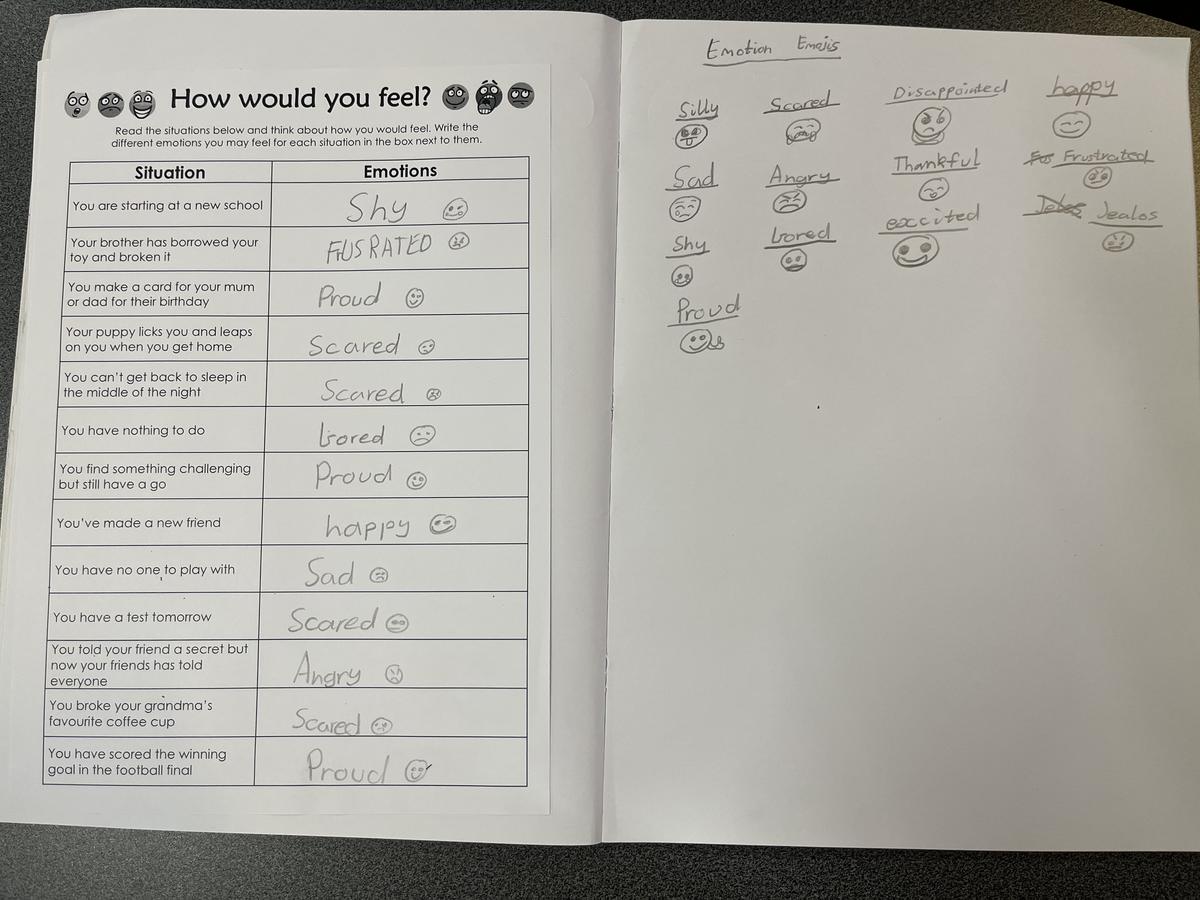 How would you feel?
Read the situations below and think about how you would feel. Write the
different emotions you may feel for each situation in the box next to them.
Situation Emotions
You are starting at a new school Shy
Your brother has borrowed your
toy and broken it
FRUSRATED
You make a card for your mum
or dad for their birthday
Proud
Your puppy licks you and leaps
on you when you get home
Scared
You can't get back to sleep in
the middle of the night
Scared
You have nothing to do bored
You find something challenging
but still have a go
Proud
You've made a new friend happy
You have no one to play with Sad
You have a test tomorrow Scared
You told your friend a secret but
now your friends has told
everyone
Angry
You broke your grandma's
favourite coffee cup
Scared
You have scored the winning
goal in the football final
Proud
Emotion Emojis
Silly Scared Disappointed happy
Sad Angry Thankful Frustrated
Shy bored excited Jealos
Proud